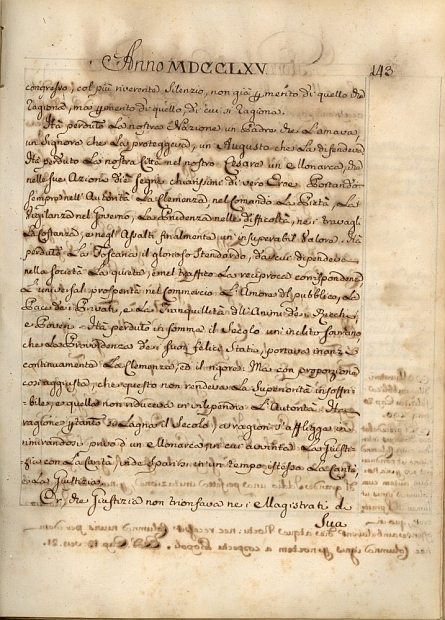 Anno MDCCLXV
143
congresso, col più riverente Silenzio, non già p merito di quello che
ragiona, ma p merito di quello, di cui si ragiona.
Hà perduto La nostra Nazione un Padre che L'amava,
un Signore che La proteggeva, un Augusto che La difendeva
Hà perduto La nostra Città nel nostro Cesare un Monarca, che
nelle sue Azioni diè segni chiarissimi di vero Eroe Portando
sempre nell'Autorità La Clemenza, nel Comando La Pietà, La
Vigilanza nel Governo, La Prudenza nelle difficoltà, ne i travagli
La Costanza, e negl'Assalti finalmente un'insuperabil Valore. Hà
perduto La Toscana il glorioso Stendardo, da cui dipendeva
nella Società La quiete, e nel traffico La reciproca corrispondenza
L'universal prosperità nel Commercio. L'Amore del pubblico, La
Pace de i Privati, e La Tranquillità dell'Animi de i Ricchi,
e Poveri. Hà perduto in somma il Secolo un'inclito Sovrano
che La Provvidenza de suoi felici Stati, portava inanzi
continuamente La Clemenza, ed il rigore: Ma con proporzione
così aggiustata, che questo non rendeva La Superiorità insoffri-
bile, e quella non riduceva in vilipendio L'Autorità.
ragione p tanto si Lagna il Secolo, a ragion s'affligge in
rimirandosi privo d'un Monarca in cui
con La Carità, onde sparirono in un tempo istesso La Carità
e La Giustizia.
Or, che Giustizia non trionfava ne i Magistrati di
Sua